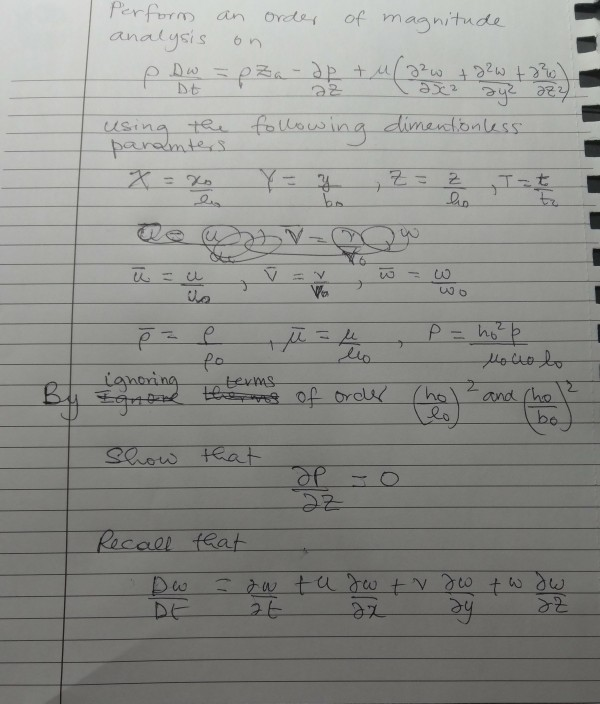 Perform an order of magnitude
analysis on
ρ Dw/Dt = ρZa - ∂p/∂z + μ(∂²w/∂x² + ∂²w/∂y² + ∂²w/∂z²)
using the following dimentionless
paramters
X = x₀/l₀ Y = y/b₀ , Z = z/h₀ , T = t/t₀
ū = u/u₀ , v̄ = v/v₀ , w̄ = w/w₀
ρ̄ = ρ/ρ₀ , μ̄ = μ/μ₀ , P = h₀²p/μ₀u₀l₀
By ignoring terms of order (h₀/l₀)² and (h₀/b₀)²
Show that
∂P/∂Z = 0
Recall that
Dw/Dt = ∂w/∂t + u ∂w/∂x + v ∂w/∂y + w ∂w/∂z